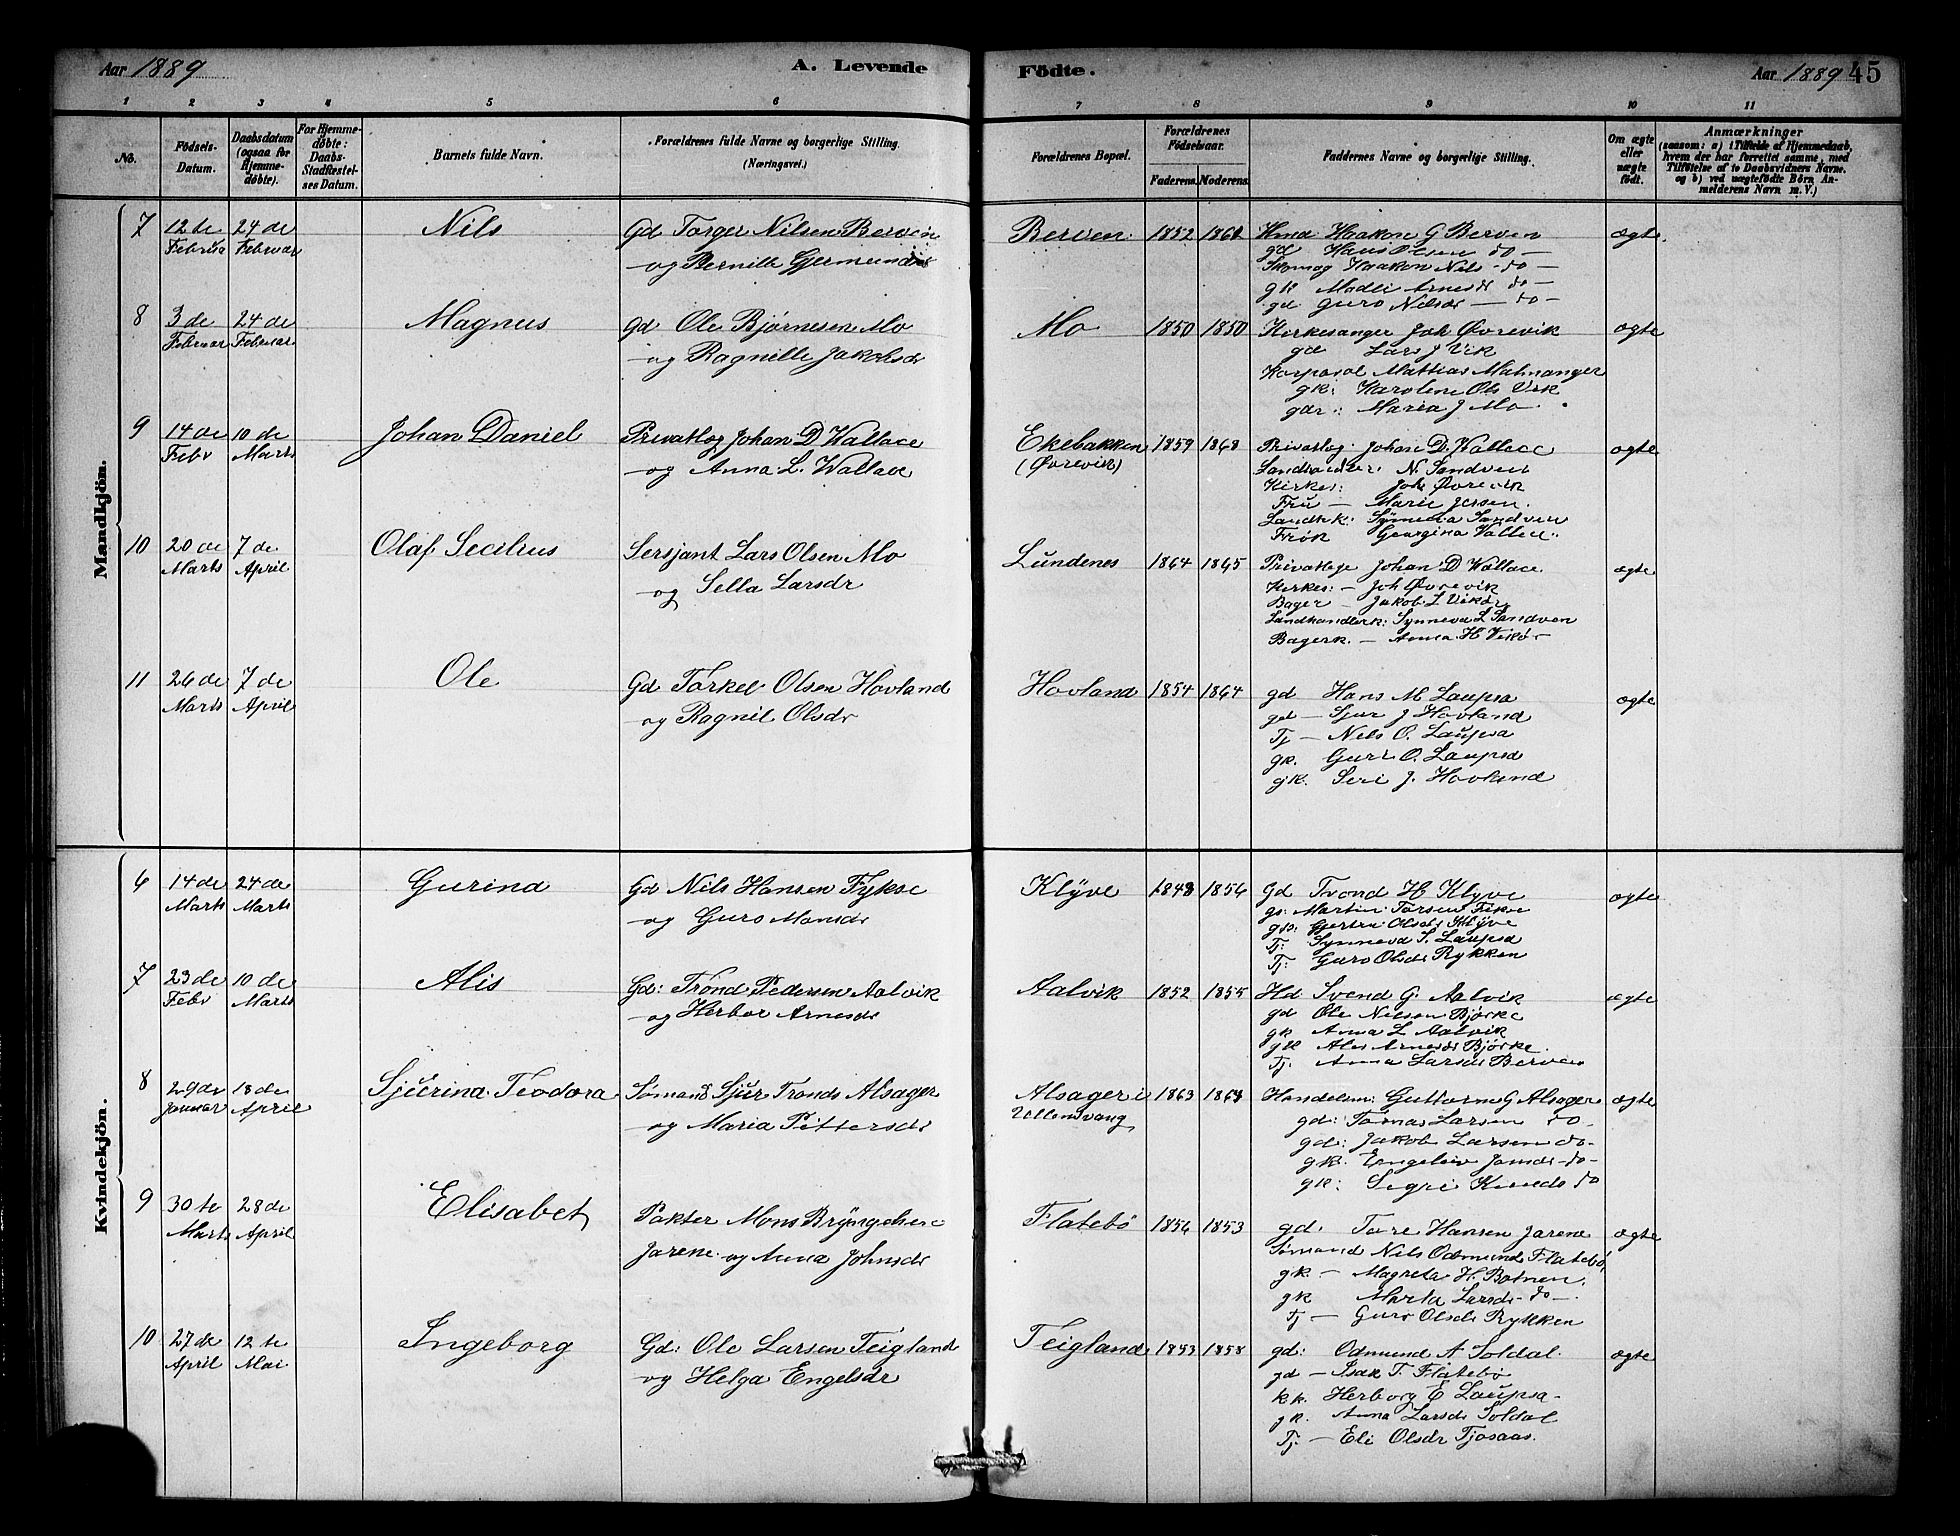 Aar 1889 A. Levende Födte. Aar 1889 45
1 2 3 4 5 6 7 8 9 10 11
No. Födsels-Datum. Daabsdatum (ogsaa for Hjemme-döbte). For Hjemme-döbte: Daabs-Stadfæstel-ses Datum. Barnets fulde Navn. Forældrenes fulde Navne og borgerlige Stilling. (Næringsvei.) Forældrenes Bopæl. Forældrenes Födselsaar. Faderens. Moderens. Faddernes Navne og borgerlige Stilling. Om ægte eller uægte födt. Anmærkninger (saasom: a) i Tilfælde af Hjemmedaab, hvem der har forrettet samme, med Tilföielse af to Daabsvidners Navne. og b) ved uægtefödte Börn, An-melderens Navn m. V.)
Mandkjön.
7 12te 24de Nils Gd Torger Nilsen Berven Berven 1852 1861 Hmd Haakon G Berven ægte.
Februa Februar og Pernille Gjermunds
gd Hans Olsen do -
Skomag Haakon Nils - do -
gk Madli Arnesdr do -
gd Guro Nilsdr - do -
8 3de 24de Magnus Gd Ole Bjørnesen Mo Mo 1850 1850 Kirkesanger Joh Øvrevik ægte
Februar Februar og Ragnille Jakobsdr
gd Lars J Vik
Korporal Mattias Malmanger
gk: Karoline Ols Vik
gdr: Maria J Mo.
9 14de 10de Johan Daniel Privatlog Johan D Wallace Ekebakken 1859 1868 Privatlog. Johan D. Wallace ægte
Febr Marts og Anna L. Wallace (Øvrevik)
Landhandler: N. Sandven
Kirkes: Joh Øvrevik
Fru - Marie Jersen.
Landhk: Synneva Sandven
Frøk Georgina Vallace.
10 20de 7de Olaf Secilius Sersjant Lars Olsen Mo Lundenes 1864 1865 Privatlge Johan D Wallace ægte
Marts April og Sella Larsdr
Kirkes: - Joh Øvrevik
Bager - Jakob L Vikør
Landhandlerk: Synneva L Sandven
Bagerk. - Anna H Vikør -
11 26de 7de Ole Gd Torkel Olsen Hovland Hovland 1854 1864 gd Hans M Laupsa ægte
Marts April og Ragnil Olsdr
gd - Sjur J Hovland
Tj - Nils O. Laupsa
gk. Guri O. Laupsa
gk. Siri J. Hovland
Kvindekjön.
6 14de 24de Gurina Gd Nils Hansen Fykse Klyve 1848 1856 Gd Trond H Klyve ægte
Marts Marts og Guro Monsdr
gs: Martin Torsen Fikse
gk: Gjertru Olsdr Klyve
Tj: Synneva S. Laupsa
Tj: Guro Olsdr Rykken
7 23de 10de Alis Gd: Trond Pedersen Aalvik Aalvik 1852 1855 Hd Svend G. Aalvik ægte
Febr Marts og Herbor Arnesdr
gd Ole Nilsen Bjørke
gk Anna L Aalvik
gk Alis Arnesdr Bjørke.
Tj: Anna Larsdr Berven
8 29de 18de Sjurina Teodora Sømand Sjur Tronds Alsager Alsager i 1863 1864 Handelsm: Guttorm G Alsager ægte
Januar April og Maria Pettersdr Ullensvang
gd: Tomas Larsen do.
gd: Jakob Larsen do-
gk: Engeleiv Jonsdr - do-
gk: Sigri Knuds do
9 30te 28de Elisabet Pakter Mons Bryngelsen Flatebö 1856 1853 gd: Tore Hansen Jarene ægte
Marts April Jarene og Anna Johnsdr
Sømand Nils Odmund Flatebö
gk - Magreta H. Botnen.
gk Marta Larsdr - do -.
Tj - Guro Olsdr Rykken
10 27de 12te Ingeborg Gd: Ole Larsen Teigland Teigland 1853 1858 gd: Odmund A Soldal. ægte
April Mai og Helga Engelsdr
gd - Isak T. Flatebö
kk. Herborg E Laupsa -
gk. Anna Larsdr Soldal
Tj: - Eli Olsdr Tjosaas.